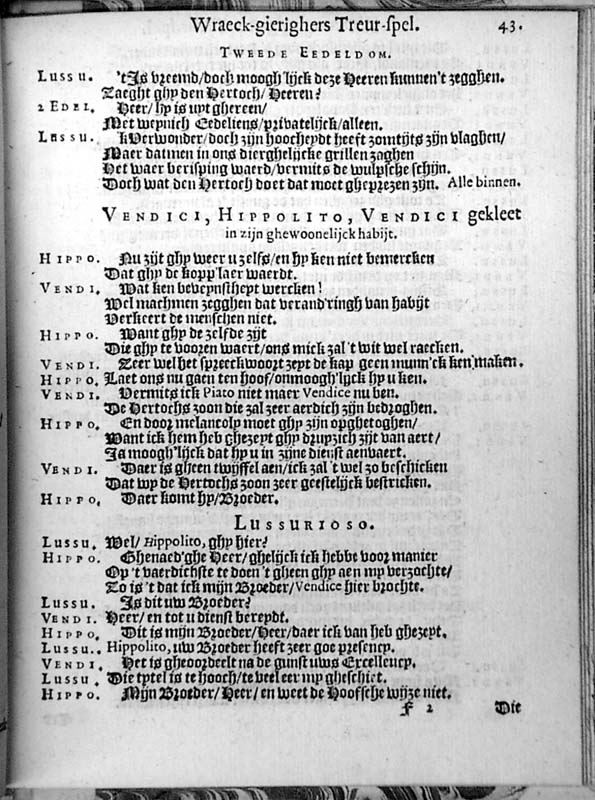 Wraeck-gierighers Treur-spel. 43.
TWEEDE EEDELDOM.
LUSSU. 'tIs vreemd/doch moogh'lijck deze Heeren kunnen't zegghen.
Zaeght ghy den Hertoch/Heeren?
2 EDEL. Heer/hy is uyt ghereen/
Met weynich Eedeliens/privatelijck/alleen.
LUSSU. kVerwonder/doch zijn hoocheydt heeft zomtijts zijn vlaghen/
Maer datmen in ons dierghelijcke grillen zaghen
Het waer berisping waerd/vermits de wulpsche schijn.
Doch wat den Hertoch doet dat moet gheprezen zijn. Alle binnen.
VENDICI, HIPPOLITO, VENDICI gekleet
in zijn ghewoonelijck habijt.
HIPPO. Nu zijt ghy weer u zelfs/en hy ken niet bemercken
Dat ghy de kopp'laer waerdt.
VENDI. Wat ken beveynstheyt wercken!
Wel machmen zegghen dat verand'ringh van habijt
Verkeert de menschen niet.
HIPPO. Want ghy de zelfde zijt
Die ghy te vooren waert/ons mick zal 't wit wel raecken.
VENDI. Zeer wel het spreeckwoort zeyt de kap geen munn'ck ken maken.
HIPPO. Laet ons nu gaen ten hoof/onmoogh'lijck hy u ken.
VENDI. Vermits ick Piato niet maer Vendice nu ben.
De Hertochs zoon die zal zeer aerdich zijn bedroghen.
HIPPO. En door melancoly moet ghy zijn opghetoghen/
Want ick hem heb ghezeyt ghy druyzich zijt van aert/
Ja moogh'lijck dat hy u in zijne dienst aenvaert.
VENDI. Daer is gheen twyffel aen/ick zal 't wel zo beschicken
Dat wy de Hertochs zoon zeer geestelijck bestricken.
HIPPO. Daer komt hy/Broeder.
LUSSURIOSO.
LUSSU. Wel/Hippolito, ghy hier?
HIPPO. Ghenaed'ghe Heer/ghelijck ick hebbe voor manier
Op 't vaerdichste te doen 't gheen ghy aen my verzochte/
Zo is 't dat ick mijn Broeder/Vendice hier brochte.
LUSSU. Is dit uw Broeder?
VENDI. Heer/en tot u dienst bereydt.
HIPPO. Dit is mijn Broeder/Heer/daer ick van heb ghezeyt.
LUSSU. Hippolito, uw Broeder heeft zeer goe presency.
VENDI. Het is gheoordeelt na de gunst uws Excellency.
LUSSU. Die tytel is te hooch/te veel eer my gheschiet.
HIPPO. Mijn Broeder/Heer/en weet de Hoofsche wijze niet.
F 2 Die